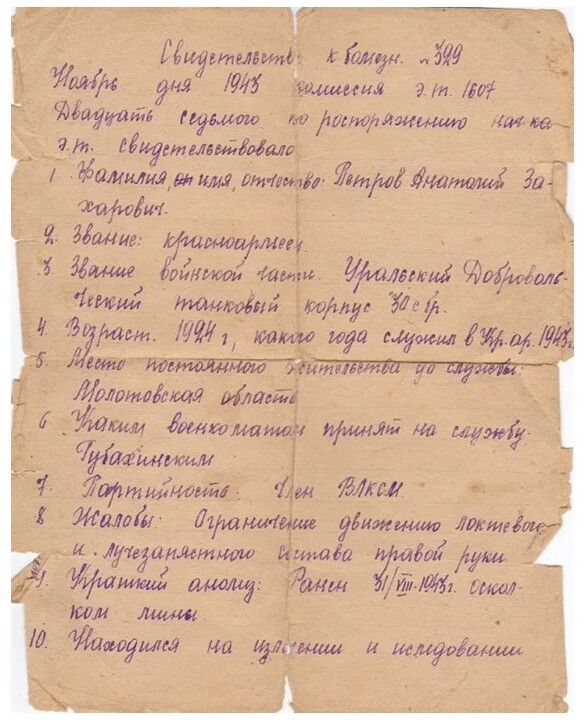 Свидетельство к болезн. №329
Ноябрь дня 1943 комиссия э.т. 1607
Двадцать седьмого по роспоряжению нач-ка
э.т. свидетельствовало
1. Фамилия, имя, отчество: Петров Анатолий За-
харович.
2. Звание: красноармеец.
3. Звание войнской части. Уральский Доброволь-
ческий танковый корпус 30 сбр.
4. Возраст. 1924 г, какого года служил в Кр. ар. 1943г.
5. Место постоянного жительства до службы:
Молотовская область
6. Каким военкоматом принят на службу.
Губахинским
7. Партийность: член ВЛКСМ
8. Жалобы: Ограничение движению локтевого
и лучезапястного состава правой руки
9. Краткий анолиз: Ранен 31/VIII-1943г. оскол-
ком мины
10. Находился на излечении и иследовании